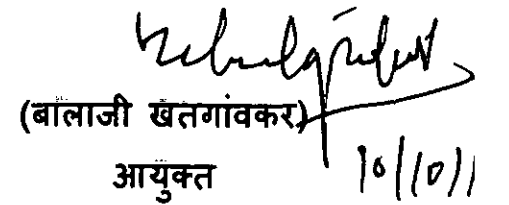 (बालाजी खतगांवकर)
आयुक्त
10/10/1